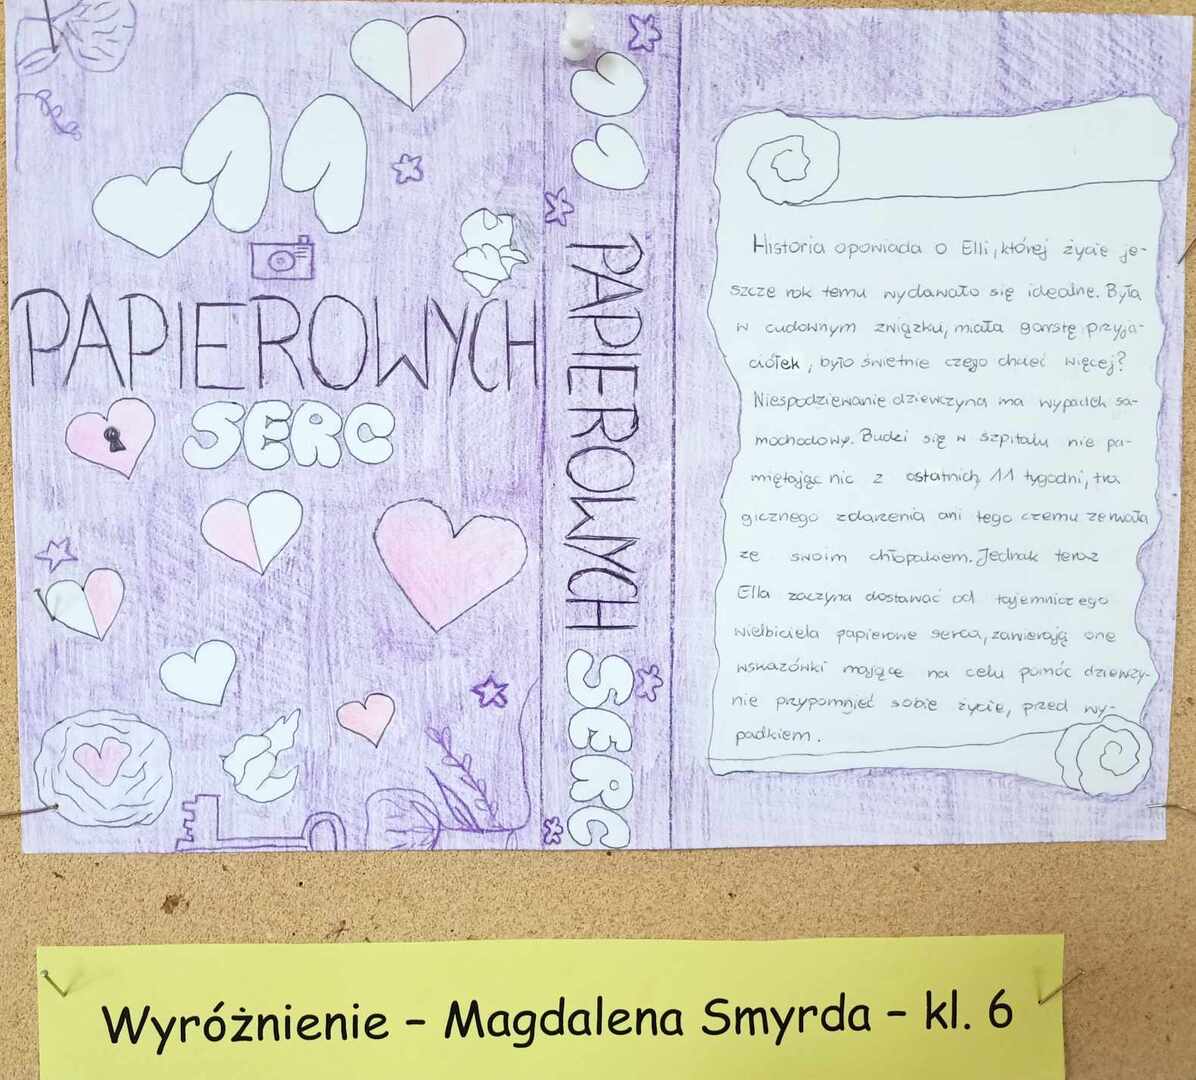 11
PAPIEROWYCH
SERC
11 PAPIEROWYCH SERC
Historia opowiada o Elli, której życie je-
szcze rok temu wydawało się idealne. Była
w cudownym związku, miała garstę przyja-
ciółek, było świetnie czego chcieć więcej?
Niespodziewanie dziewczyna ma wypadek sa-
mochodowy. Budzi się w szpitalu nie pa-
miętając nic z ostatnich 11 tygodni, tra
gicznego zdarzenia ani tego czemu zerwała
ze swoim chłopakiem. Jednak teraz
Ella zaczyna dostawać od tajemniczego
wielbiciela papierowe serca, zawierają one
wskazówki mające na celu pomóc dziewczy-
nie przypomnieć sobie życie, przed wy-
padkiem.
Wyróżnienie – Magdalena Smyrda – kl. 6